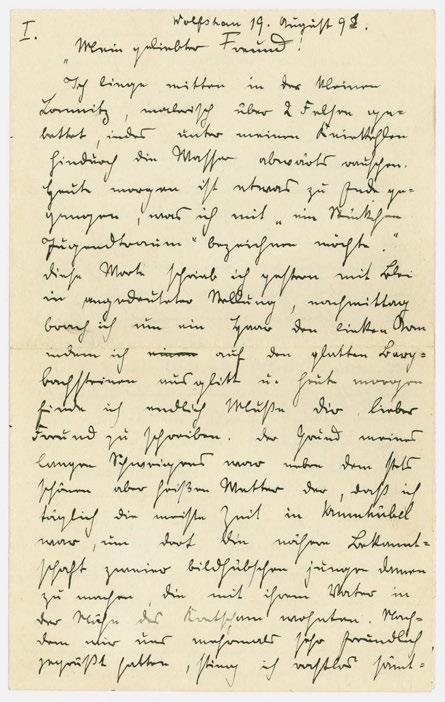 I.
Wolfshau 19. August 98.
"Mein geliebter Freund!
"Ich liege mitten in der kleinen
Lomnitz, malerisch über 2 Felsen ge-
bettet, indes unter meinen Kniekehlen
hindurch die Wasser abwärts rauschen.
Heute morgen ist etwas zu Ende ge-
gangen, was ich mit „ein Stückchen
Jugendtraum" bezeichnen möchte."
Diese Worte schrieb ich gestern mit Blei
in angedeuteter Stellung, nachmittag
brach ich um ein Haar den linken Arm
indem ich auf den glatten Berg-
bachsteinen ausglitt u. heute morgen
finde ich endlich Muße Dir, lieber
Freund zu schreiben. Der Grund meines
langen Schweigens war neben dem stets
schönen aber heißen Wetter der, daß ich
täglich die meiste Zeit in Krummhübel
war, um dort die nähere Bekannt-
schaft zweier bildhübschen jungen Damen
zu machen, die mit ihrem Vater in
der Nähe des Kretscham wohnten. Nach-
dem wir uns mehrmals sehr freundlich
gegrüßt hatten, stieg ich rastlos sämt-